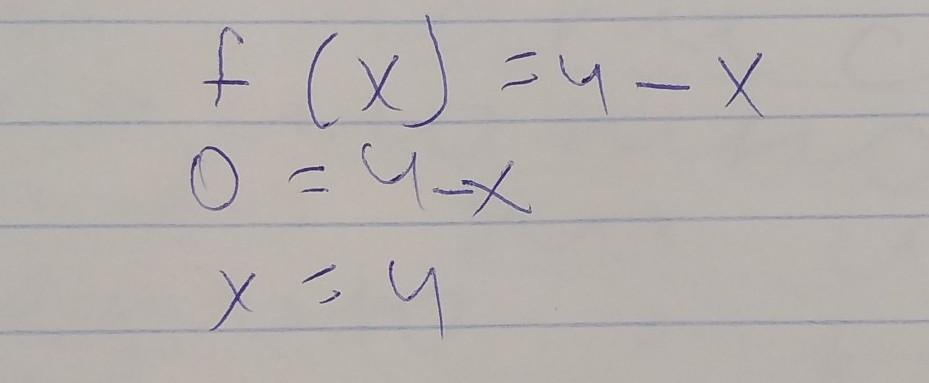 f(x) = 4 - x
0 = 4 - x
x = 4